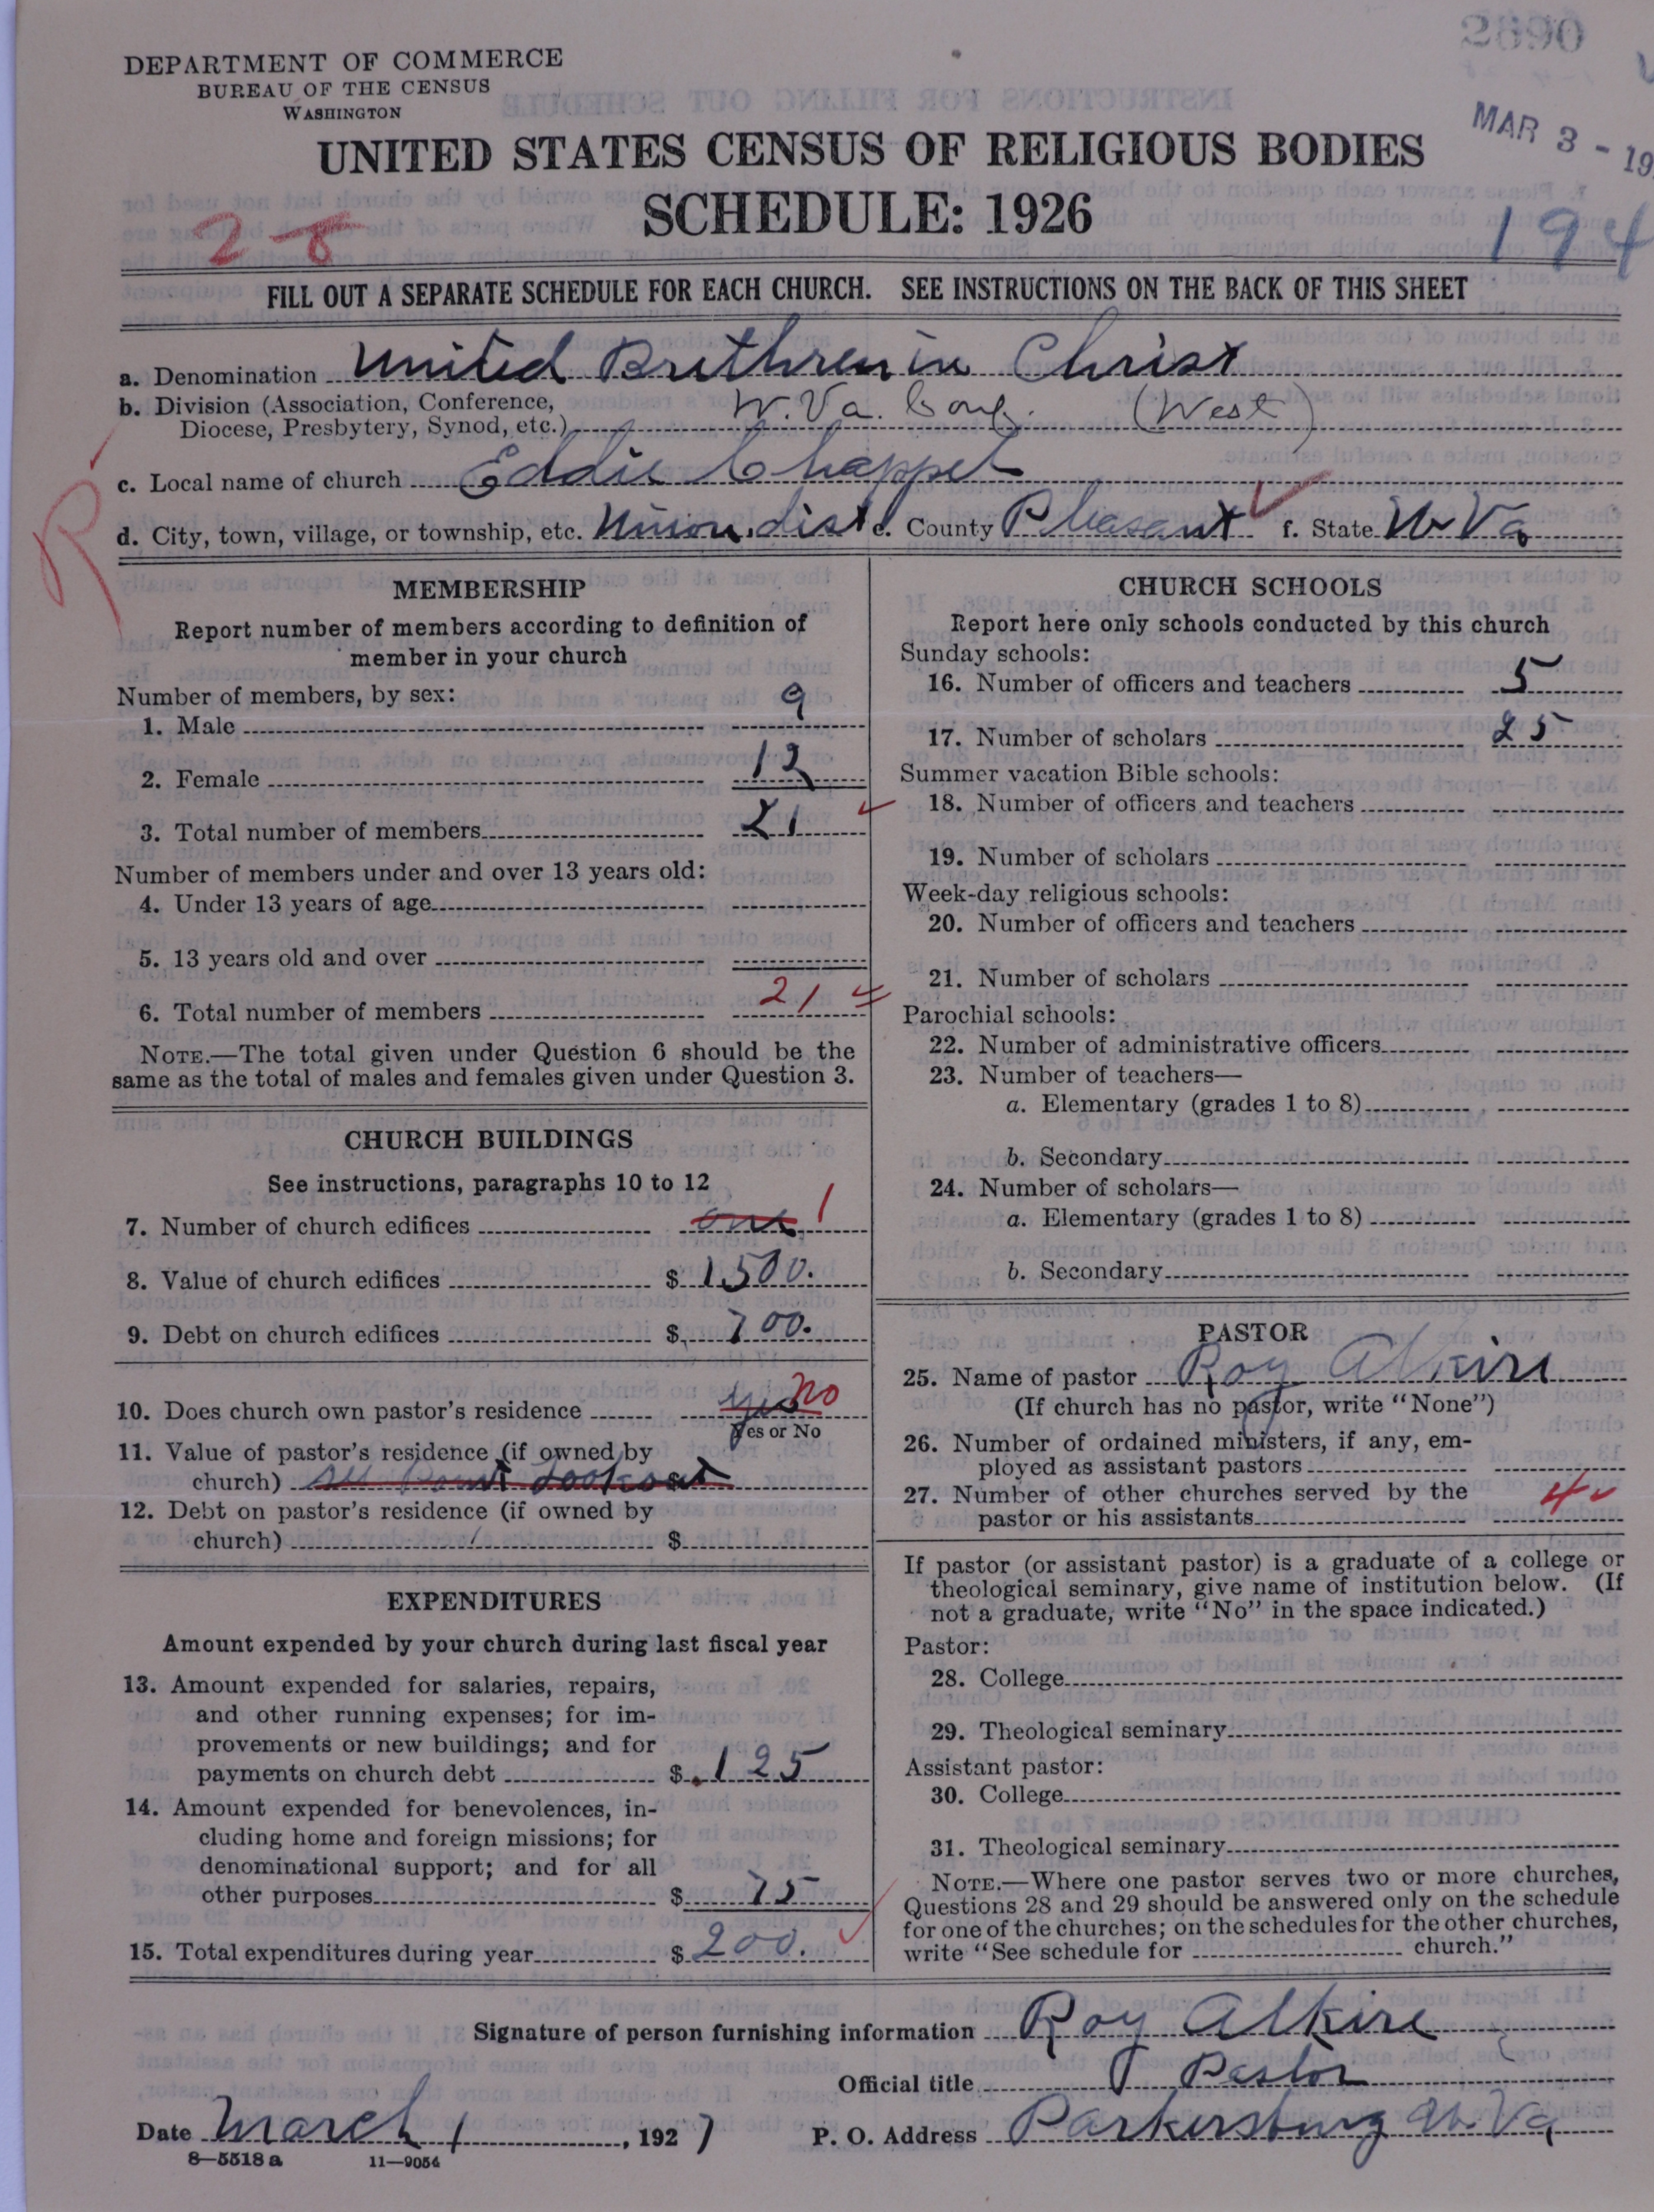 2690
DEPARTMENT OF COMMERCE
BUREAU OF THE CENSUS
WASHINGTON
MAR 3 - 19
UNITED STATES CENSUS OF RELIGIOUS BODIES
SCHEDULE: 1926
2-8
194
FILL OUT A SEPARATE SCHEDULE FOR EACH CHURCH. SEE INSTRUCTIONS ON THE BACK OF THIS SHEET
a. Denomination United Brethren in Christ
b. Division (Association, Conference, Diocese, Presbytery, Synod, etc.) W. Va. Conf. (West)
c. Local name of church Eddie Chappel
d. City, town, village, or township, etc. Union dist e. County Pleasant f. State W Va
R
MEMBERSHIP
Report number of members according to definition of
member in your church
Number of members, by sex:
1. Male 9
2. Female 12
3. Total number of members 21
Number of members under and over 13 years old:
4. Under 13 years of age
5. 13 years old and over
6. Total number of members 21
NOTE.—The total given under Question 6 should be the
same as the total of males and females given under Question 3.
CHURCH BUILDINGS
See instructions, paragraphs 10 to 12
7. Number of church edifices one 1
8. Value of church edifices $ 1500.
9. Debt on church edifices $ 700.
10. Does church own pastor's residence yes no
Yes or No
11. Value of pastor's residence (if owned by
church) see Point Lookout $
12. Debt on pastor's residence (if owned by
church) $
EXPENDITURES
Amount expended by your church during last fiscal year
13. Amount expended for salaries, repairs,
and other running expenses; for im-
provements or new buildings; and for
payments on church debt $ 125
14. Amount expended for benevolences, in-
cluding home and foreign missions; for
denominational support; and for all
other purposes $ 75
15. Total expenditures during year $ 200.
CHURCH SCHOOLS
Report here only schools conducted by this church
Sunday schools:
16. Number of officers and teachers 5
17. Number of scholars 25
Summer vacation Bible schools:
18. Number of officers and teachers
19. Number of scholars
Week-day religious schools:
20. Number of officers and teachers
21. Number of scholars
Parochial schools:
22. Number of administrative officers
23. Number of teachers—
a. Elementary (grades 1 to 8)
b. Secondary
24. Number of scholars—
a. Elementary (grades 1 to 8)
b. Secondary
PASTOR
25. Name of pastor Roy Alkire
(If church has no pastor, write "None")
26. Number of ordained ministers, if any, em-
ployed as assistant pastors
27. Number of other churches served by the
pastor or his assistants 4
If pastor (or assistant pastor) is a graduate of a college or
theological seminary, give name of institution below. (If
not a graduate, write "No" in the space indicated.)
Pastor:
28. College
29. Theological seminary
Assistant pastor:
30. College
31. Theological seminary
NOTE.—Where one pastor serves two or more churches,
Questions 28 and 29 should be answered only on the schedule
for one of the churches; on the schedules for the other churches,
write "See schedule for church."
Signature of person furnishing information Roy Alkire
Official title Pastor
Date March 1, 1927 P. O. Address Parkersburg W. Va
8—5518 a 11—9054